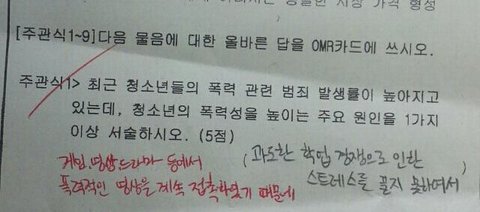 [주관식1~9]다음 물음에 대한 올바른 답을 OMR카드에 쓰시오.
주관식1> 최근 청소년들의 폭력 관련 범죄 발생률이 높아지고
있는데, 청소년의 폭력성을 높이는 주요 원인을 1가지
이상 서술하시오. (5점)
게임, 영상, 드라마 등에서
폭력적인 영상을 계속 접촉하였기 때문에
(과도한 학업 경쟁으로 인한
스트레스를 풀지 못하여서